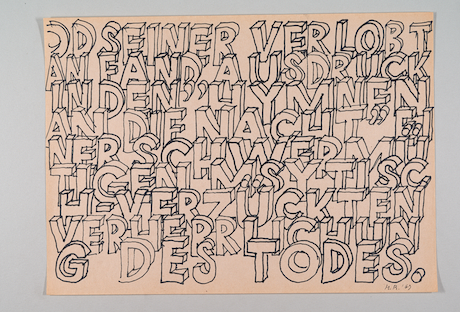 OD SEINER VERLOBT
EN FAND AUSDRUCK
IN DEN „HYMNEN
AN DIE NACHT“ EI
NER SCHWERMÜ
TIGEN, MYSTISC
H-VERZÜCKTEN
VERHERRLICHUN
G DES TODES.